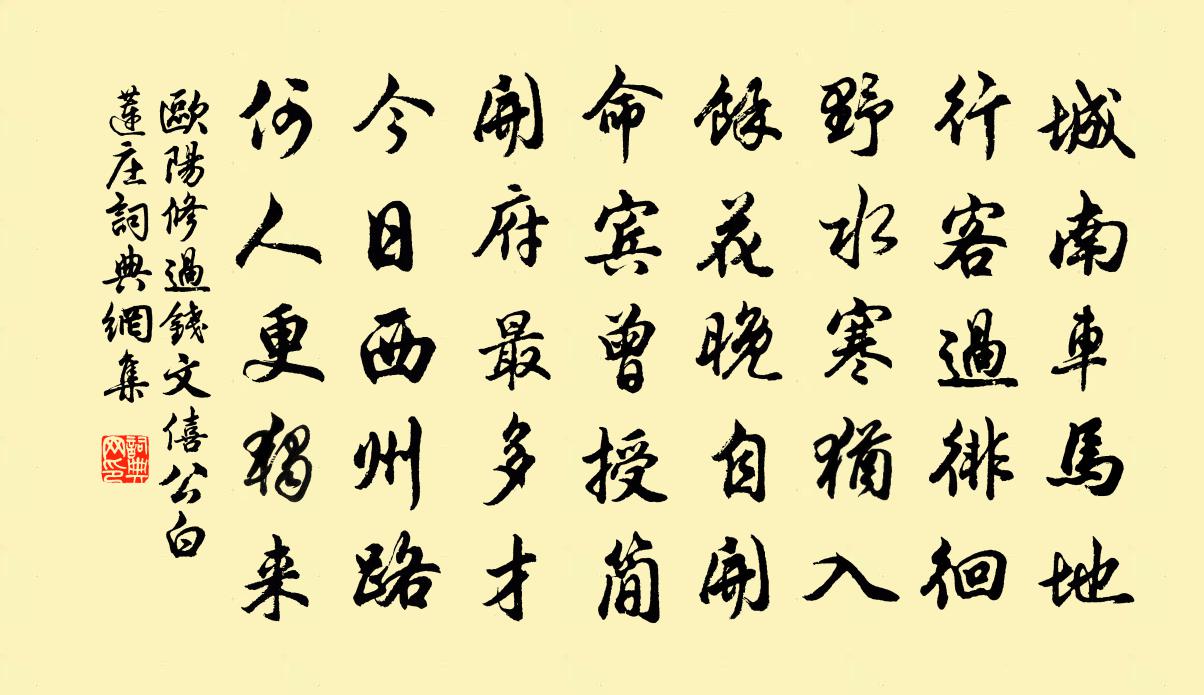 城南車馬地
行客過徘徊
野水寒猶入
餘花晚自開
命宾曾授简
開府最多才
今日西州路
何人更獨来
歐陽修過錢文僖公白
蓮庄詞典網集
詞典网印